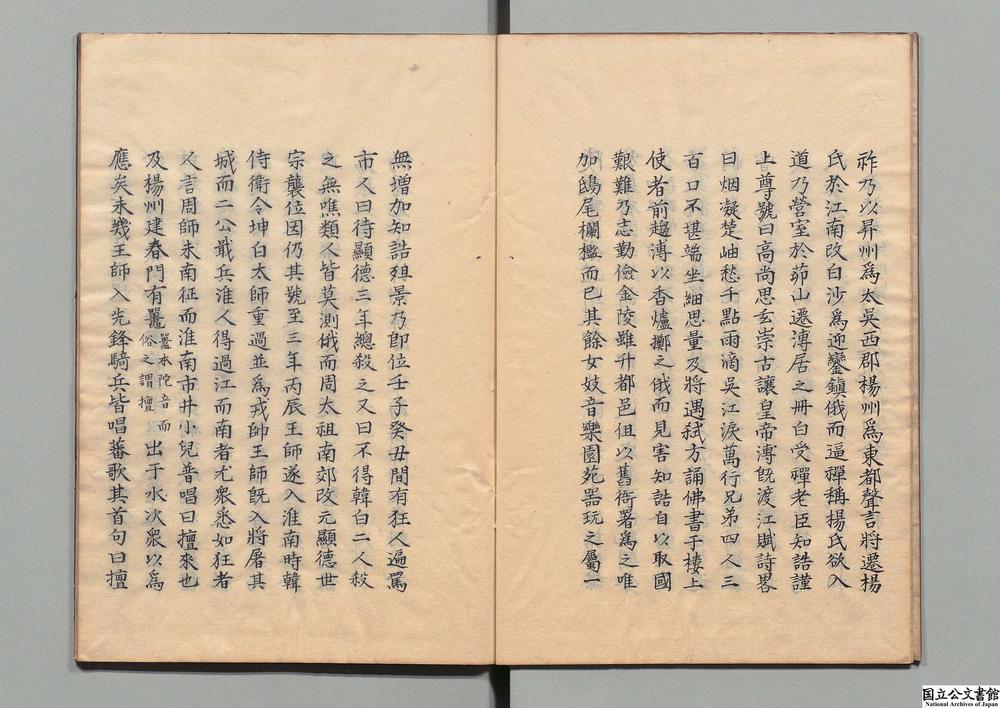 祚乃以昇州爲太吳西郡楊州爲東都聲言將遷楊
氏於江南改白沙爲迎鑾鎮俄而逼禪稱楊氏欲入
道乃營室於茆山遷溥居之冊白受禪老臣知誥謹
上尊號曰高尚思玄崇古讓皇帝溥旣渡江賦詩畧
曰烟凝楚岫愁千點雨滴吳江淚萬行兄弟四人三
百口不堪端坐細思量及將遇弒方誦佛書于樓上
使者前趨溥以香爐擲之俄而見害知誥自以取國
艱難乃志勤儉金陵雖升都邑但以舊衙署爲之唯
加鴟尾欄檻而已其餘女妓音樂園苑器玩之屬一
無增加知誥殂景乃卽位壬子癸丑間有狂人遍罵
市人曰待顯德三年總殺之又曰不得韓白二人殺
之無噍類人皆莫測俄而周太祖南郊改元顯德世
宗襲位因仍其號至三年丙辰王師遂入淮南時韓
侍衛令坤白太師重過並爲戎帥王師旣入將屠其
城而二公戢兵淮人得過江而南者尤衆悉如狂者
人言周師未南征而淮南市井小兒普唱曰擅來也
及楊州建春門有鼉鼉本陀音而俗之謂擅出于水次衆以爲
應矣未幾王師入先鋒騎兵皆唱蕃歌其首句曰擅
国立公文書館
National Archives of Japan